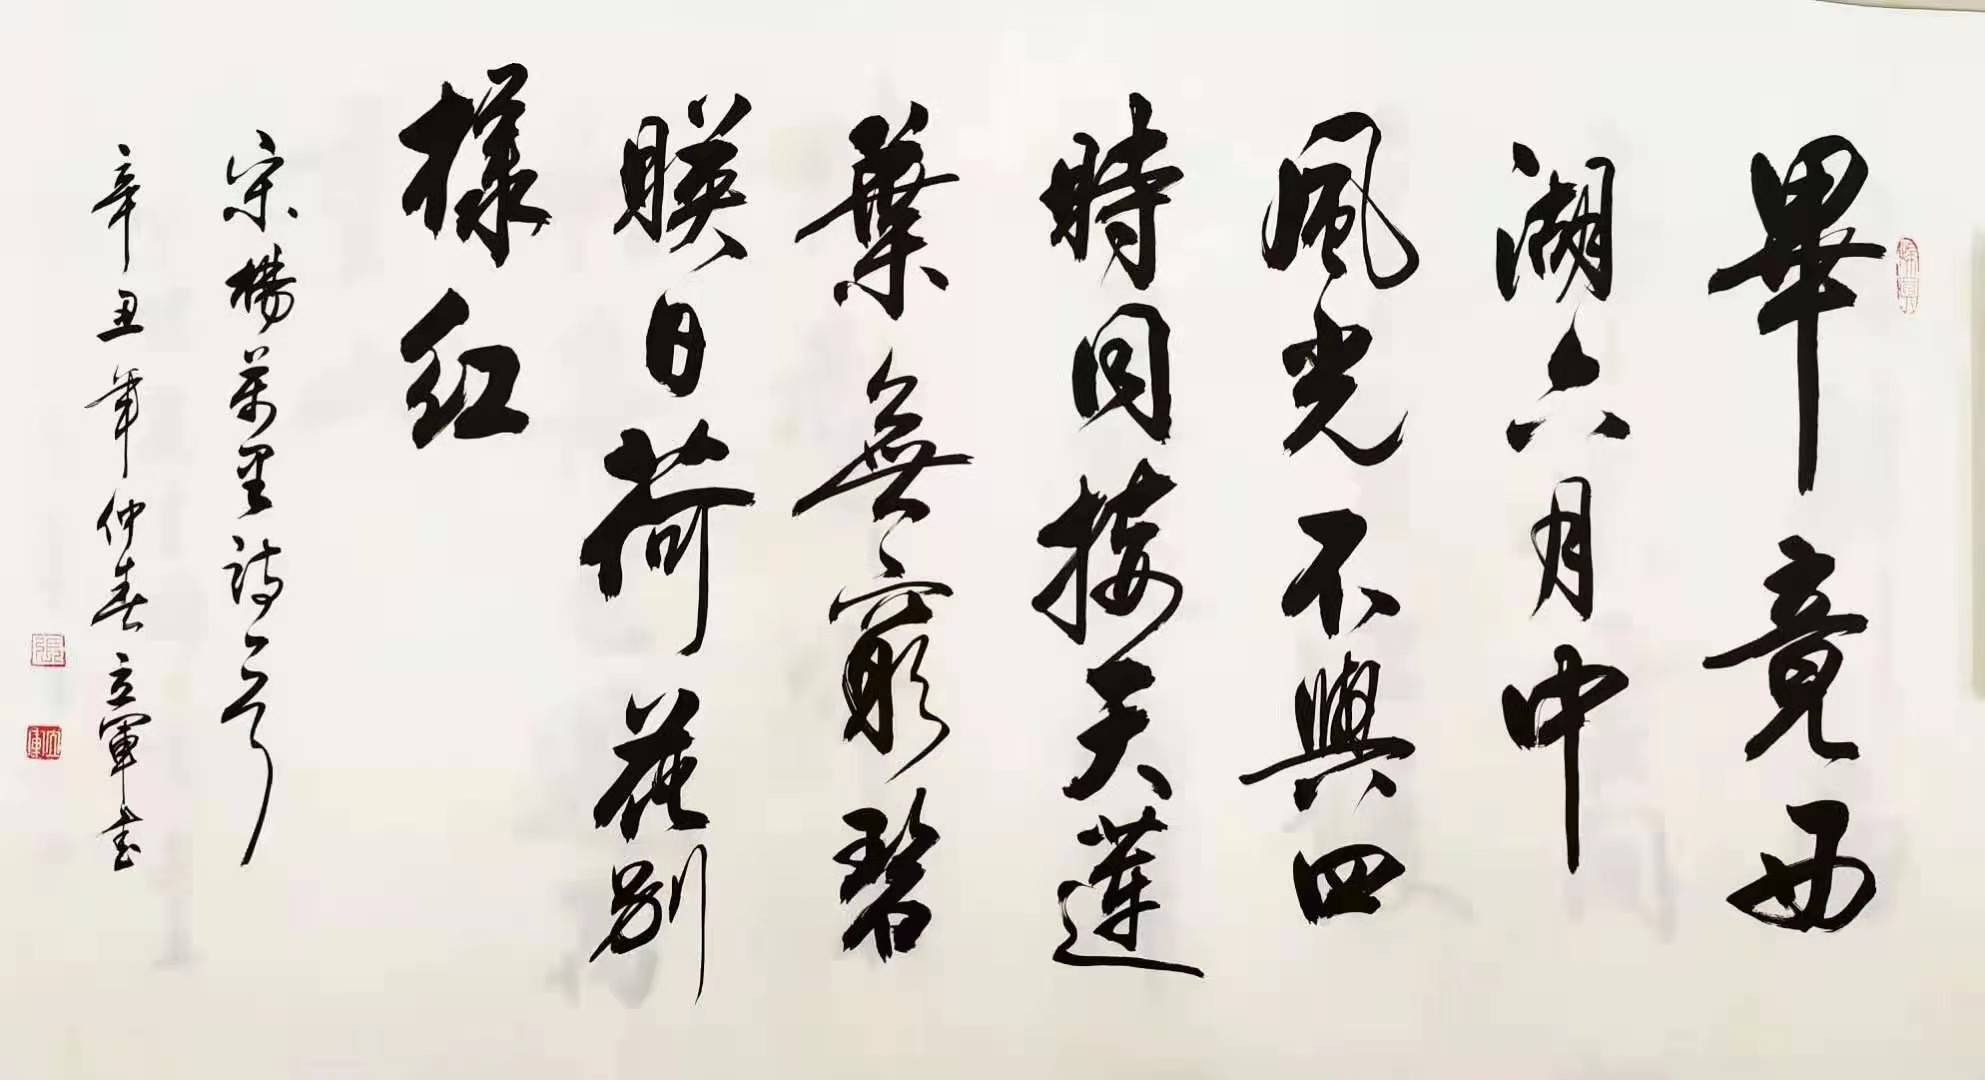 畢竟西
湖六月中
風光不與四
時同接天蓮
葉無窮碧
映日荷花別
樣紅
宋楊萬里詩一首
辛丑年仲春立軍書
張